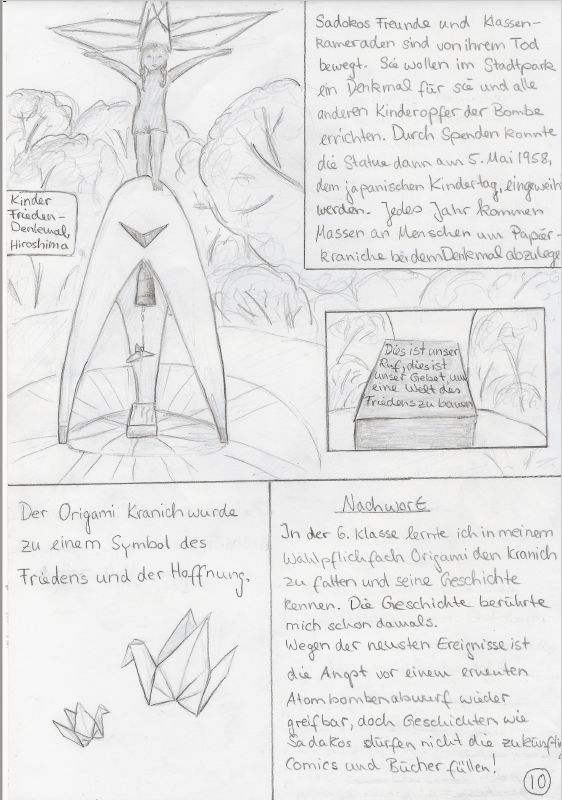 Sadokos Freunde und Klassen-
kameraden sind von ihrem Tod
bewegt. Sie wollen im Stadtpark
ein Denkmal für sie und alle
anderen Kinderopfer der Bombe
errichten. Durch Spenden konnte
die Statue dann am 5. Mai 1958,
dem japanischen Kindertag, eingeweih
werden. Jedes Jahr kommen
Massen an Menschen um Papier-
kraniche bei dem Denkmal abzulege
Kinder
Frieden-
Denkmal,
Hiroshima
Dies ist unser
Ruf, dies ist
unser Gebet, um
eine Welt des
Friedens zu bauen
Der Origami Kranich wurde
zu einem Symbol des
Friedens und der Hoffnung.
Nachwort
In der 6. Klasse lernte ich in meinem
Wahlpflichfach Origami den Kranich
zu falten und seine Geschichte
kennen. Die Geschichte berührte
mich schon damals.
Wegen der neusten Ereignisse ist
die Angst vor einem erneuten
Atombombenabwurf wieder
greifbar, doch Geschichten wie
Sadakos dürfen nicht die zukünftig
Comics und Bücher füllen!
10